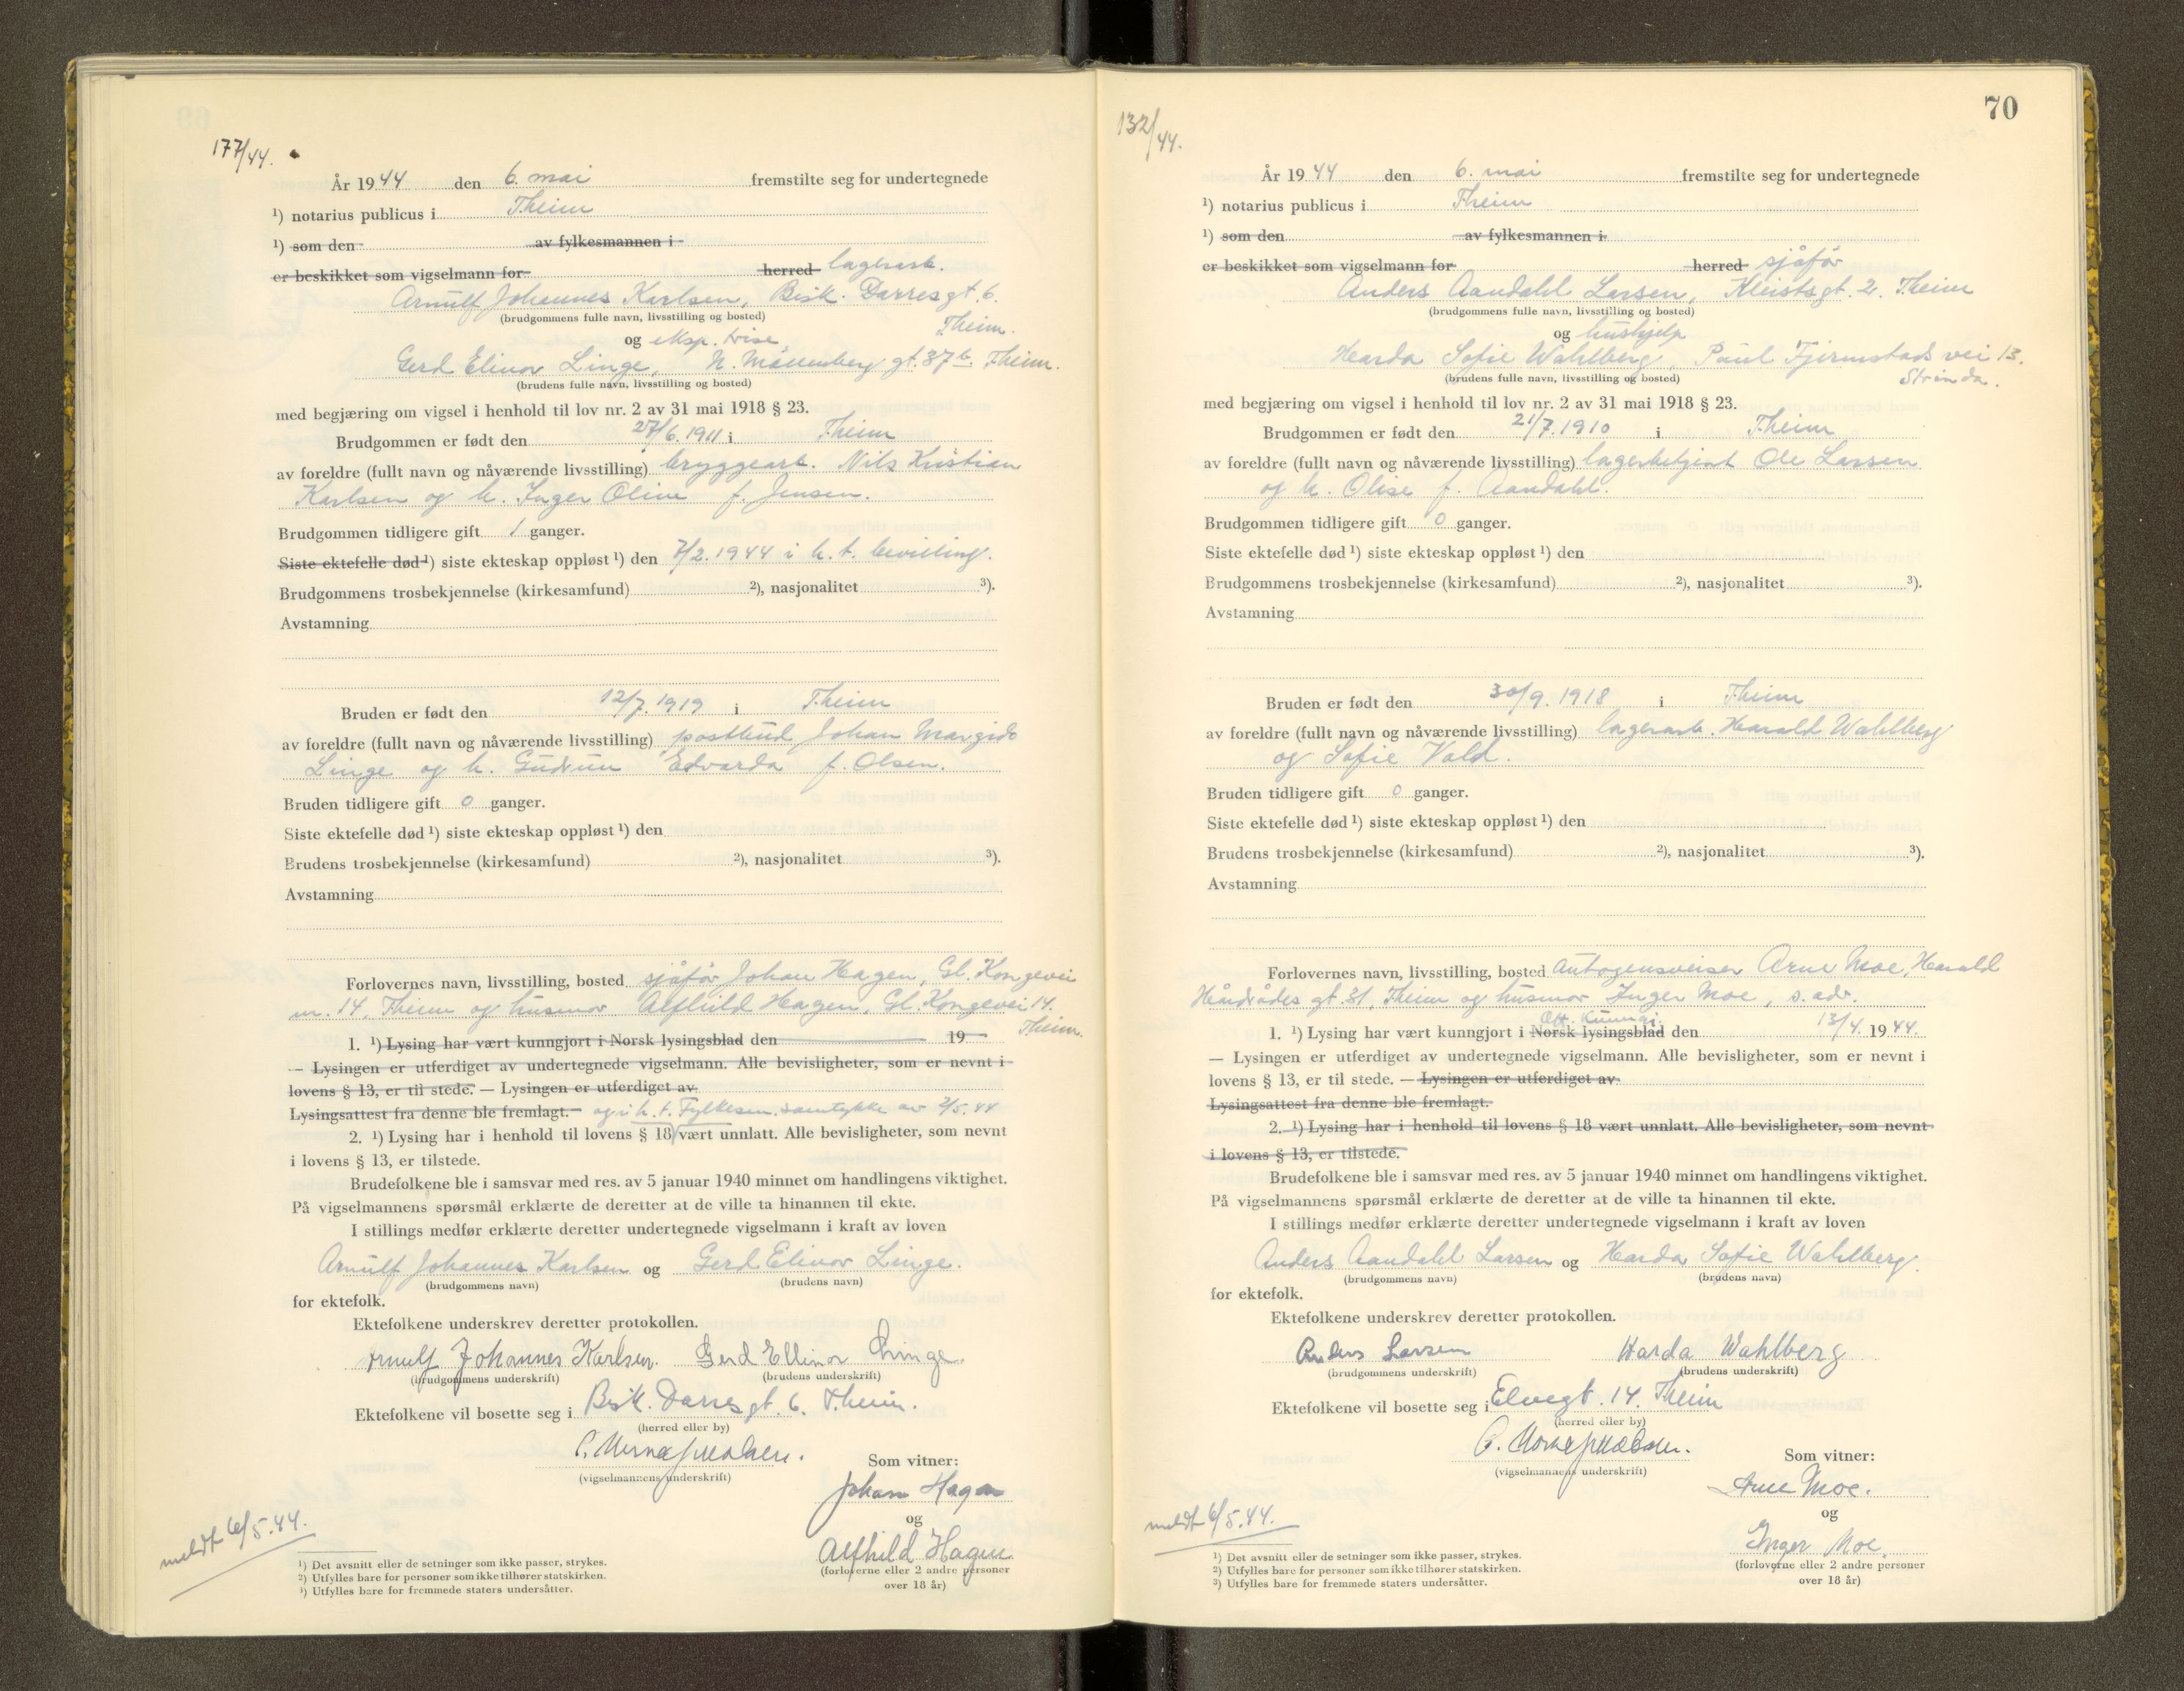 177/44.
År 1944 den 6. mai fremstilte seg for undertegnede
¹) notarius publicus i T.heim
¹) som den av fylkesmannen i
er beskikket som vigselmann for herred lagerarb.
Arnulf Johannes Karlsen, Bisk. Darresgt. 6.
(brudgommens fulle navn, livsstilling og bosted) T.heim.
og eksp. trise
Gerd Elinor Linge, N. Møllenberg gt. 37 b. T.heim.
(brudens fulle navn, livsstilling og bosted)
med begjæring om vigsel i henhold til lov nr. 2 av 31 mai 1918 § 23.
Brudgommen er født den 27/6. 1911 i T.heim
av foreldre (fullt navn og nåværende livsstilling) bryggearb. Nils Kristian
Karlsen og h. Inger Oline f. Jensen.
Brudgommen tidligere gift 1 ganger.
Siste ektefelle død ¹) siste ekteskap oppløst ¹) den 7/2. 1944 i h. t. bevilling.
Brudgommens trosbekjennelse (kirkesamfund) ²), nasjonalitet ³).
Avstamning
Bruden er født den 12/7. 1919 i T.heim
av foreldre (fullt navn og nåværende livsstilling) postbud Johan Margido
Linge og h. Gudrun Edvarda f. Olsen.
Bruden tidligere gift 0 ganger.
Siste ektefelle død ¹) siste ekteskap oppløst ¹) den
Brudens trosbekjennelse (kirkesamfund) ²), nasjonalitet ³).
Avstamning
Forlovernes navn, livsstilling, bosted sjåfør Johan Hagen, Gl. Kongevei
nr. 14, T.heim og husmor Alfhild Hagen, Gl. Kongevei 14.
T.heim.
1. ¹) Lysing har vært kunngjort i Norsk lysingsblad den 19
— Lysingen er utferdiget av undertegnede vigselmann. Alle bevisligheter, som er nevnt i
lovens § 13, er til stede. — Lysingen er utferdiget av
Lysingsattest fra denne ble fremlagt. — og i h. t. Fylkesm. samtykke av 2/5. 44
2. ¹) Lysing har i henhold til lovens § 18 vært unnlatt. Alle bevisligheter, som nevnt
i lovens § 13, er tilstede.
Brudefolkene ble i samsvar med res. av 5 januar 1940 minnet om handlingens viktighet.
På vigselmannens spørsmål erklærte de deretter at de ville ta hinannen til ekte.
I stillings medfør erklærte deretter undertegnede vigselmann i kraft av loven
Arnulf Johannes Karlsen og Gerd Elinor Linge.
(brudgommens navn) (brudens navn)
for ektefolk.
Ektefolkene underskrev deretter protokollen.
Arnulf Johannes Karlsen. Gerd Ellinor Linge.
(brudgommens underskrift) (brudens underskrift)
Ektefolkene vil bosette seg i Bisk. Darresgt. 6. T.heim.
(herred eller by)
(vigselmannens underskrift)
Som vitner:
Johan Hagen
og
Alfhild Hagen
(forloverne eller 2 andre personer
over 18 år)
meldt 6/5. 44.
¹) Det avsnitt eller de setninger som ikke passer, strykes.
²) Utfylles bare for personer som ikke tilhører statskirken.
³) Utfylles bare for fremmede staters undersåtter.
70
132/44.
År 1944 den 6. mai fremstilte seg for undertegnede
¹) notarius publicus i T.heim
¹) som den av fylkesmannen i
er beskikket som vigselmann for herred sjåfør
Anders Aandahl Larsen, Kleistsgt. 2. T.heim
(brudgommens fulle navn, livsstilling og bosted)
og hushjelp
Harda Sofie Wahlberg, Paul Fjermstads vei 13.
(brudens fulle navn, livsstilling og bosted) Strinda.
med begjæring om vigsel i henhold til lov nr. 2 av 31 mai 1918 § 23.
Brudgommen er født den 21/7. 1910 i T.heim
av foreldre (fullt navn og nåværende livsstilling) lagerbetjent Ole Larsen
og h. Olise f. Aandahl.
Brudgommen tidligere gift 0 ganger.
Siste ektefelle død ¹) siste ekteskap oppløst ¹) den
Brudgommens trosbekjennelse (kirkesamfund) ²), nasjonalitet ³).
Avstamning
Bruden er født den 30/9. 1918 i T.heim
av foreldre (fullt navn og nåværende livsstilling) lagerarb. Harald Wahlberg
og Sofie Vold.
Bruden tidligere gift 0 ganger.
Siste ektefelle død ¹) siste ekteskap oppløst ¹) den
Brudens trosbekjennelse (kirkesamfund) ²), nasjonalitet ³).
Avstamning
Forlovernes navn, livsstilling, bosted Autogensveiser Arne Moe, Harald
Hårdrådes gt. 31, T.heim og husmor Inger Moe, s. adr.
Off. kunngj.
1. ¹) Lysing har vært kunngjort i Norsk lysingsblad den 13/4. 1944.
— Lysingen er utferdiget av undertegnede vigselmann. Alle bevisligheter, som er nevnt i
lovens § 13, er til stede. — Lysingen er utferdiget av
Lysingsattest fra denne ble fremlagt.
2. ¹) Lysing har i henhold til lovens § 18 vært unnlatt. Alle bevisligheter, som nevnt
i lovens § 13, er tilstede.
Brudefolkene ble i samsvar med res. av 5 januar 1940 minnet om handlingens viktighet.
På vigselmannens spørsmål erklærte de deretter at de ville ta hinannen til ekte.
I stillings medfør erklærte deretter undertegnede vigselmann i kraft av loven
Anders Aandahl Larsen og Harda Sofie Wahlberg.
(brudgommens navn) (brudens navn)
for ektefolk.
Ektefolkene underskrev deretter protokollen.
Anders Larsen Harda Wahlberg
(brudgommens underskrift) (brudens underskrift)
Ektefolkene vil bosette seg i Elvegt. 14. T.heim
(herred eller by)
(vigselmannens underskrift)
Som vitner:
Arne Moe.
og
Inger Moe
(forloverne eller 2 andre personer
over 18 år)
meldt 6/5. 44.
¹) Det avsnitt eller de setninger som ikke passer, strykes.
²) Utfylles bare for personer som ikke tilhører statskirken.
³) Utfylles bare for fremmede staters undersåtter.